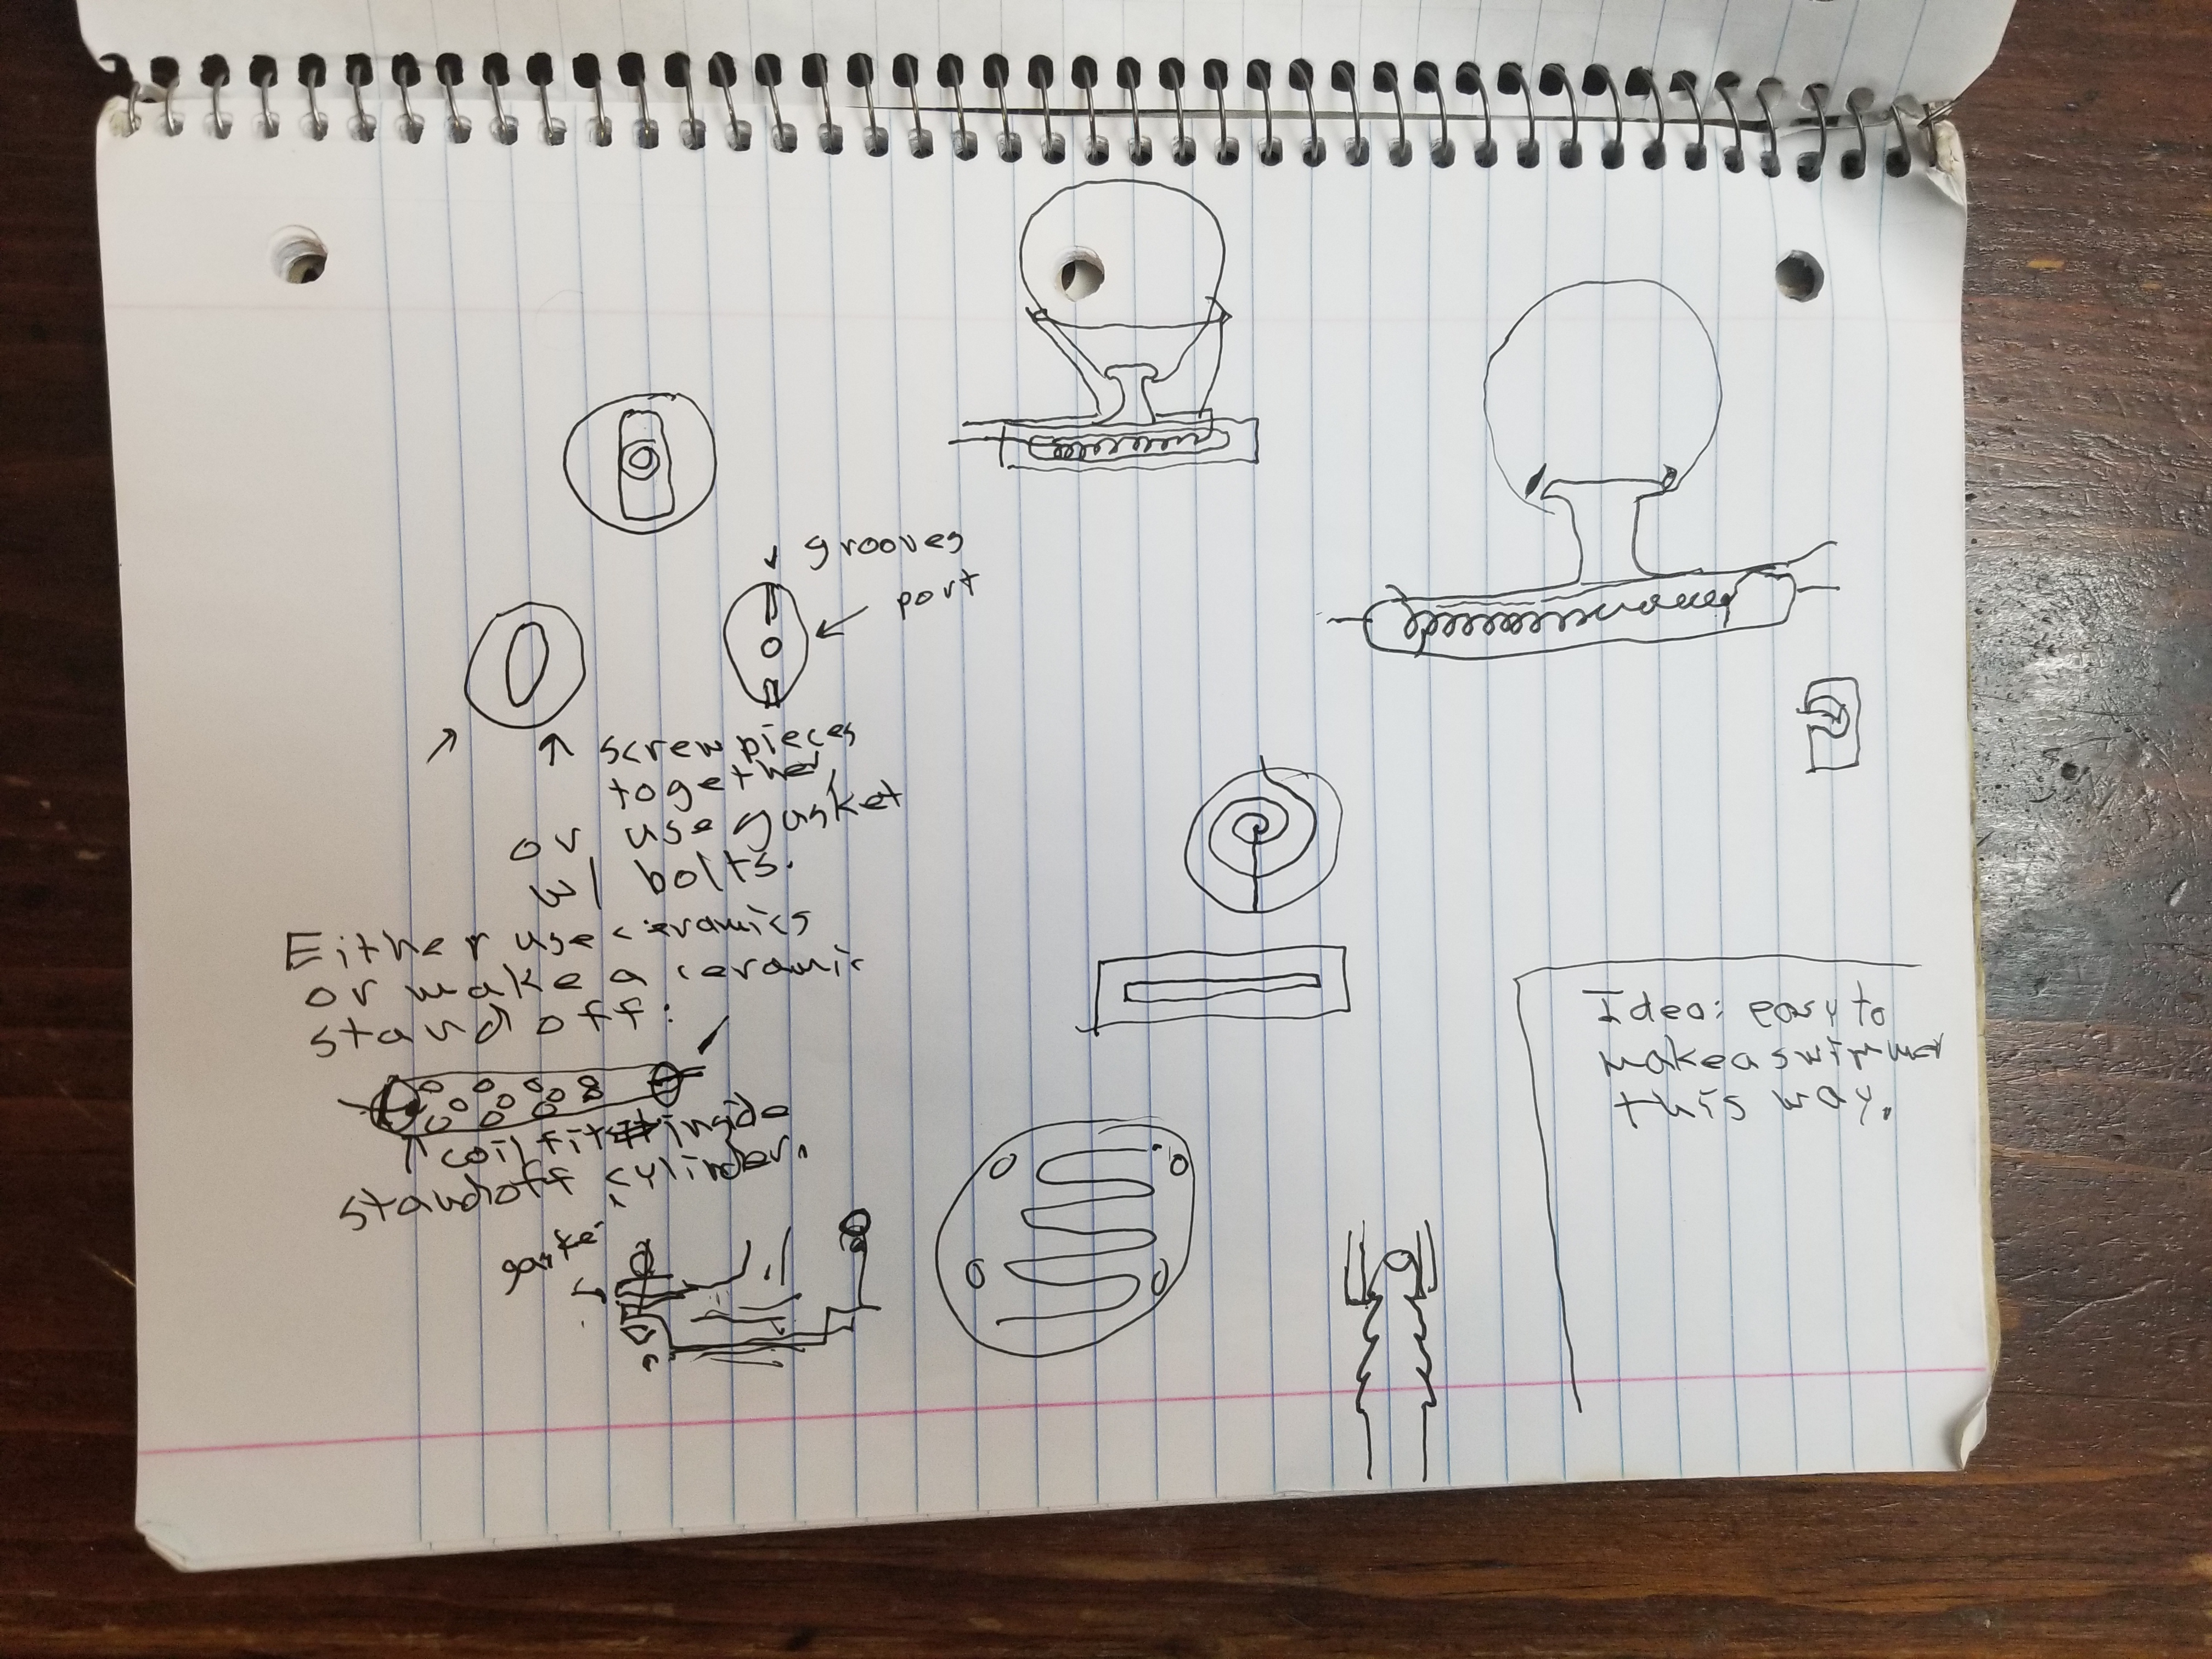 grooves
port
screw pieces
together
or use gasket
w/ bolts.
Either use ceramics
or make a ceramic
standoff:
coil fit inside
standoff cylinder.
Idea: Easy to
make a swirl
this way.